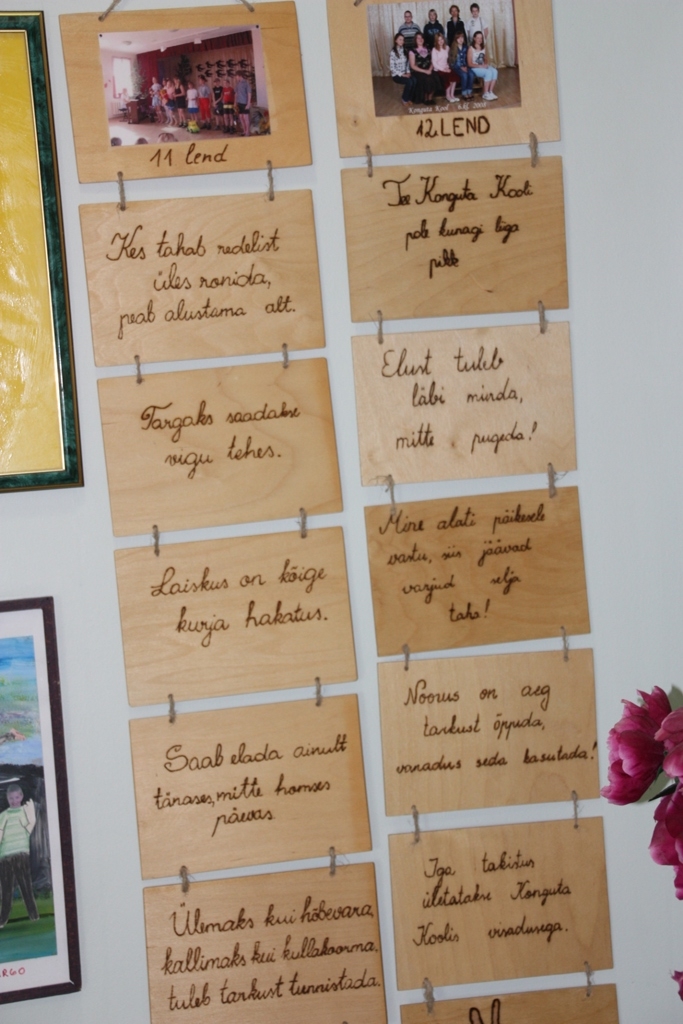 11 lend
Kes tahab redelist
üles ronida,
peab alustama alt.
Targaks saadakse
vigu tehes.
Laiskus on kõige
kurja hakatus.
Saab elada ainult
tänases, mitte homses
päevas.
Ülemaks kui hõbevara,
kallimaks kui kullakoorma,
tuleb tarkust tunnistada.
Konguta Kool 2008
12. LEND
Tee Konguta Kooli
pole kunagi liiga
pikk
Elust tuleb
läbi minna,
mitte pugeda!
Mine alati päikesele
vastu, siis jäävad
varjud selja
taha!
Noorus on aeg
tarkust õppida,
vanadus seda kasutada!
Iga takistus
ületatakse Konguta
Koolis visadusega.
RGO